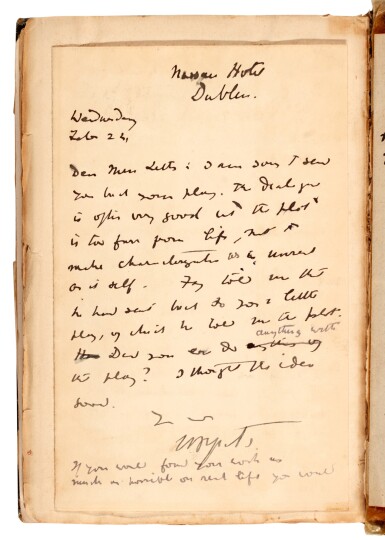 Nassau Hotel
Dublin.
Wednesday
Feb 24
Dear Miss Letts: I am sorry to send
you back your play. The dialogue
is often very good but the plot
is too far from life, not to
make characterization as unreal
as itself. Fay told me that
he had sent back to you a little
play, of which he told me the plot.
Did you ever do anything with
the play? I thought the idea
good.
Yrs
WBYeats.
If you would found your work as
much as possible on real life you would